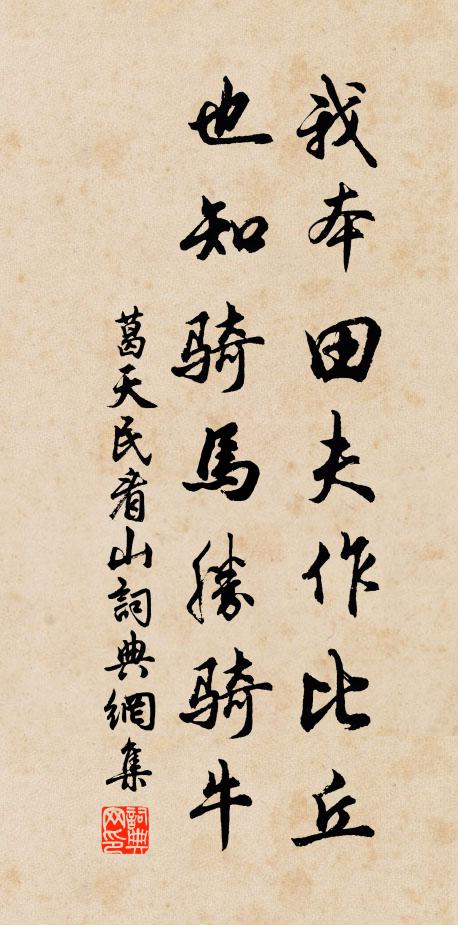 我本田夫作比丘
也知騎馬勝騎牛
葛天民看山詞典網集
詞典网印